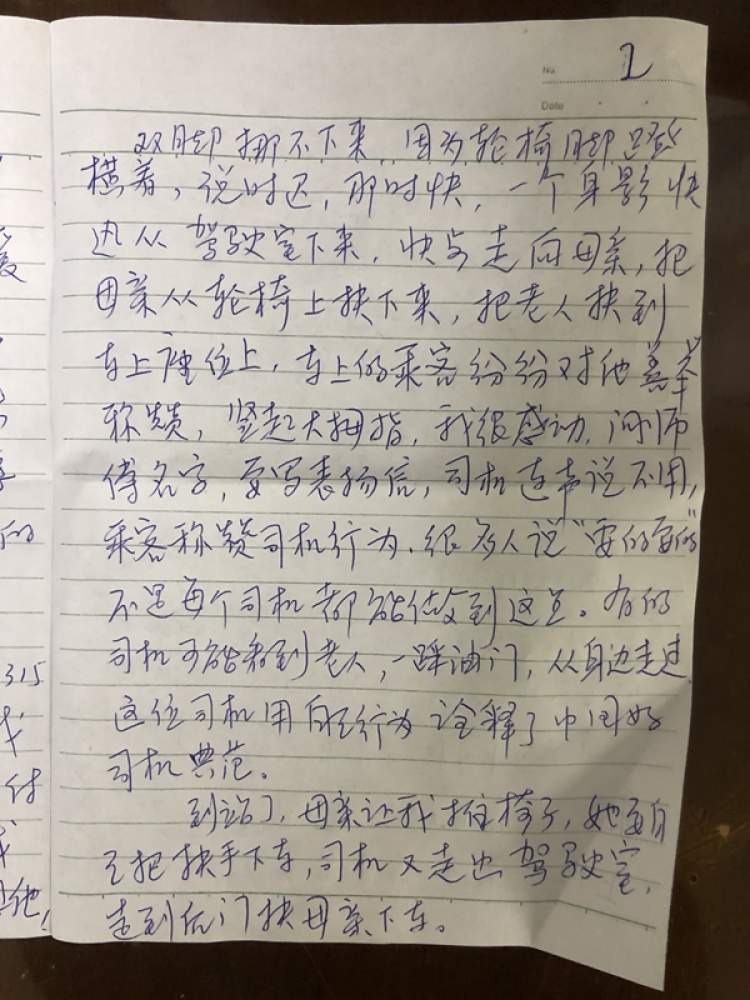 No.
2
Date
双脚挪不下来,因为轮椅脚踏
横着,说时迟,那时快,一个身影快
迅从驾驶室下来,快步走向母亲,把
母亲从轮椅上扶下来,把老人扶到
车上座位上,车上的乘客纷纷对他善举
称赞,竖起大拇指,我很感动,问师
傅名字,要写表扬信,司机连声说不用,
乘客称赞司机行为.很多人说“要的要的”
不是每个司机都能做到这点。有的
司机可能看到老人,一踩油门,从身边走过
这位司机用自己行为诠释了中国好
司机典范。
到站了,母亲让我推椅子,她要自
己把扶手下车,司机又走出驾驶室,
走到后门扶母亲下车。
的
315
付
他,